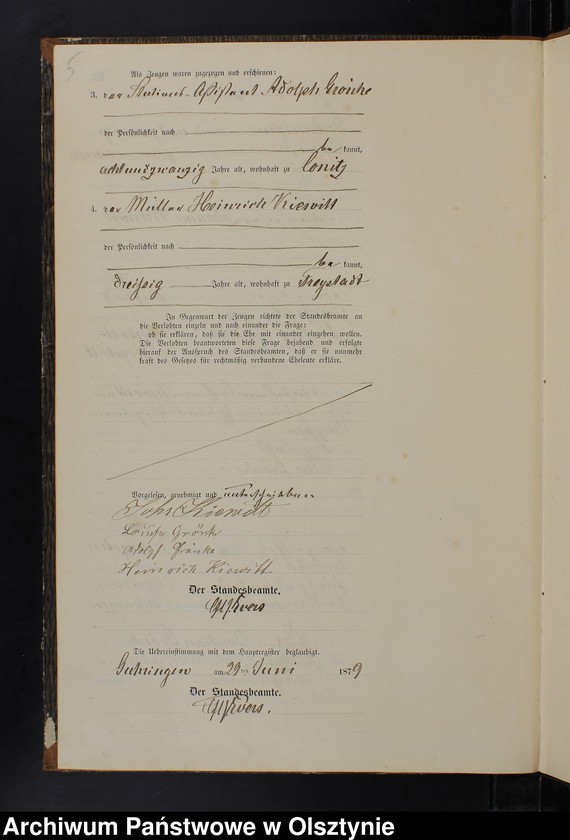 5
Als Zeugen waren zugezogen und erschienen:
3. der Stations-Assistent Adolph
der Persönlichkeit nach
be kannt,
achtundzwanzig Jahre alt, wohnhaft zu Conitz
4. der Müller Heinrich Kiewitt
der Persönlichkeit nach
be kannt,
dreißig Jahre alt, wohnhaft zu Freystadt
In Gegenwart der Zeugen richtete der Standesbeamte an
die Verlobten einzeln und nach einander die Frage:
ob sie erklären, daß sie die Ehe mit einander eingehen wollen.
Die Verlobten beantworteten diese Frage bejahend und erfolgte
hierauf der Ausspruch des Standesbeamten, daß er sie nunmehr
kraft des Gesetzes für rechtmäßig verbundene Eheleute erkläre.
Vorgelesen, genehmigt und unterschrieben
Joh. Kiewitt
Louise
Adolph
Heinrich Kiewitt
Der Standesbeamte.
Die Uebereinstimmung mit dem Hauptregister beglaubigt.
Guhringen am 29 ten Juni 1879
Der Standesbeamte.
Archiwum Państwowe w Olsztynie